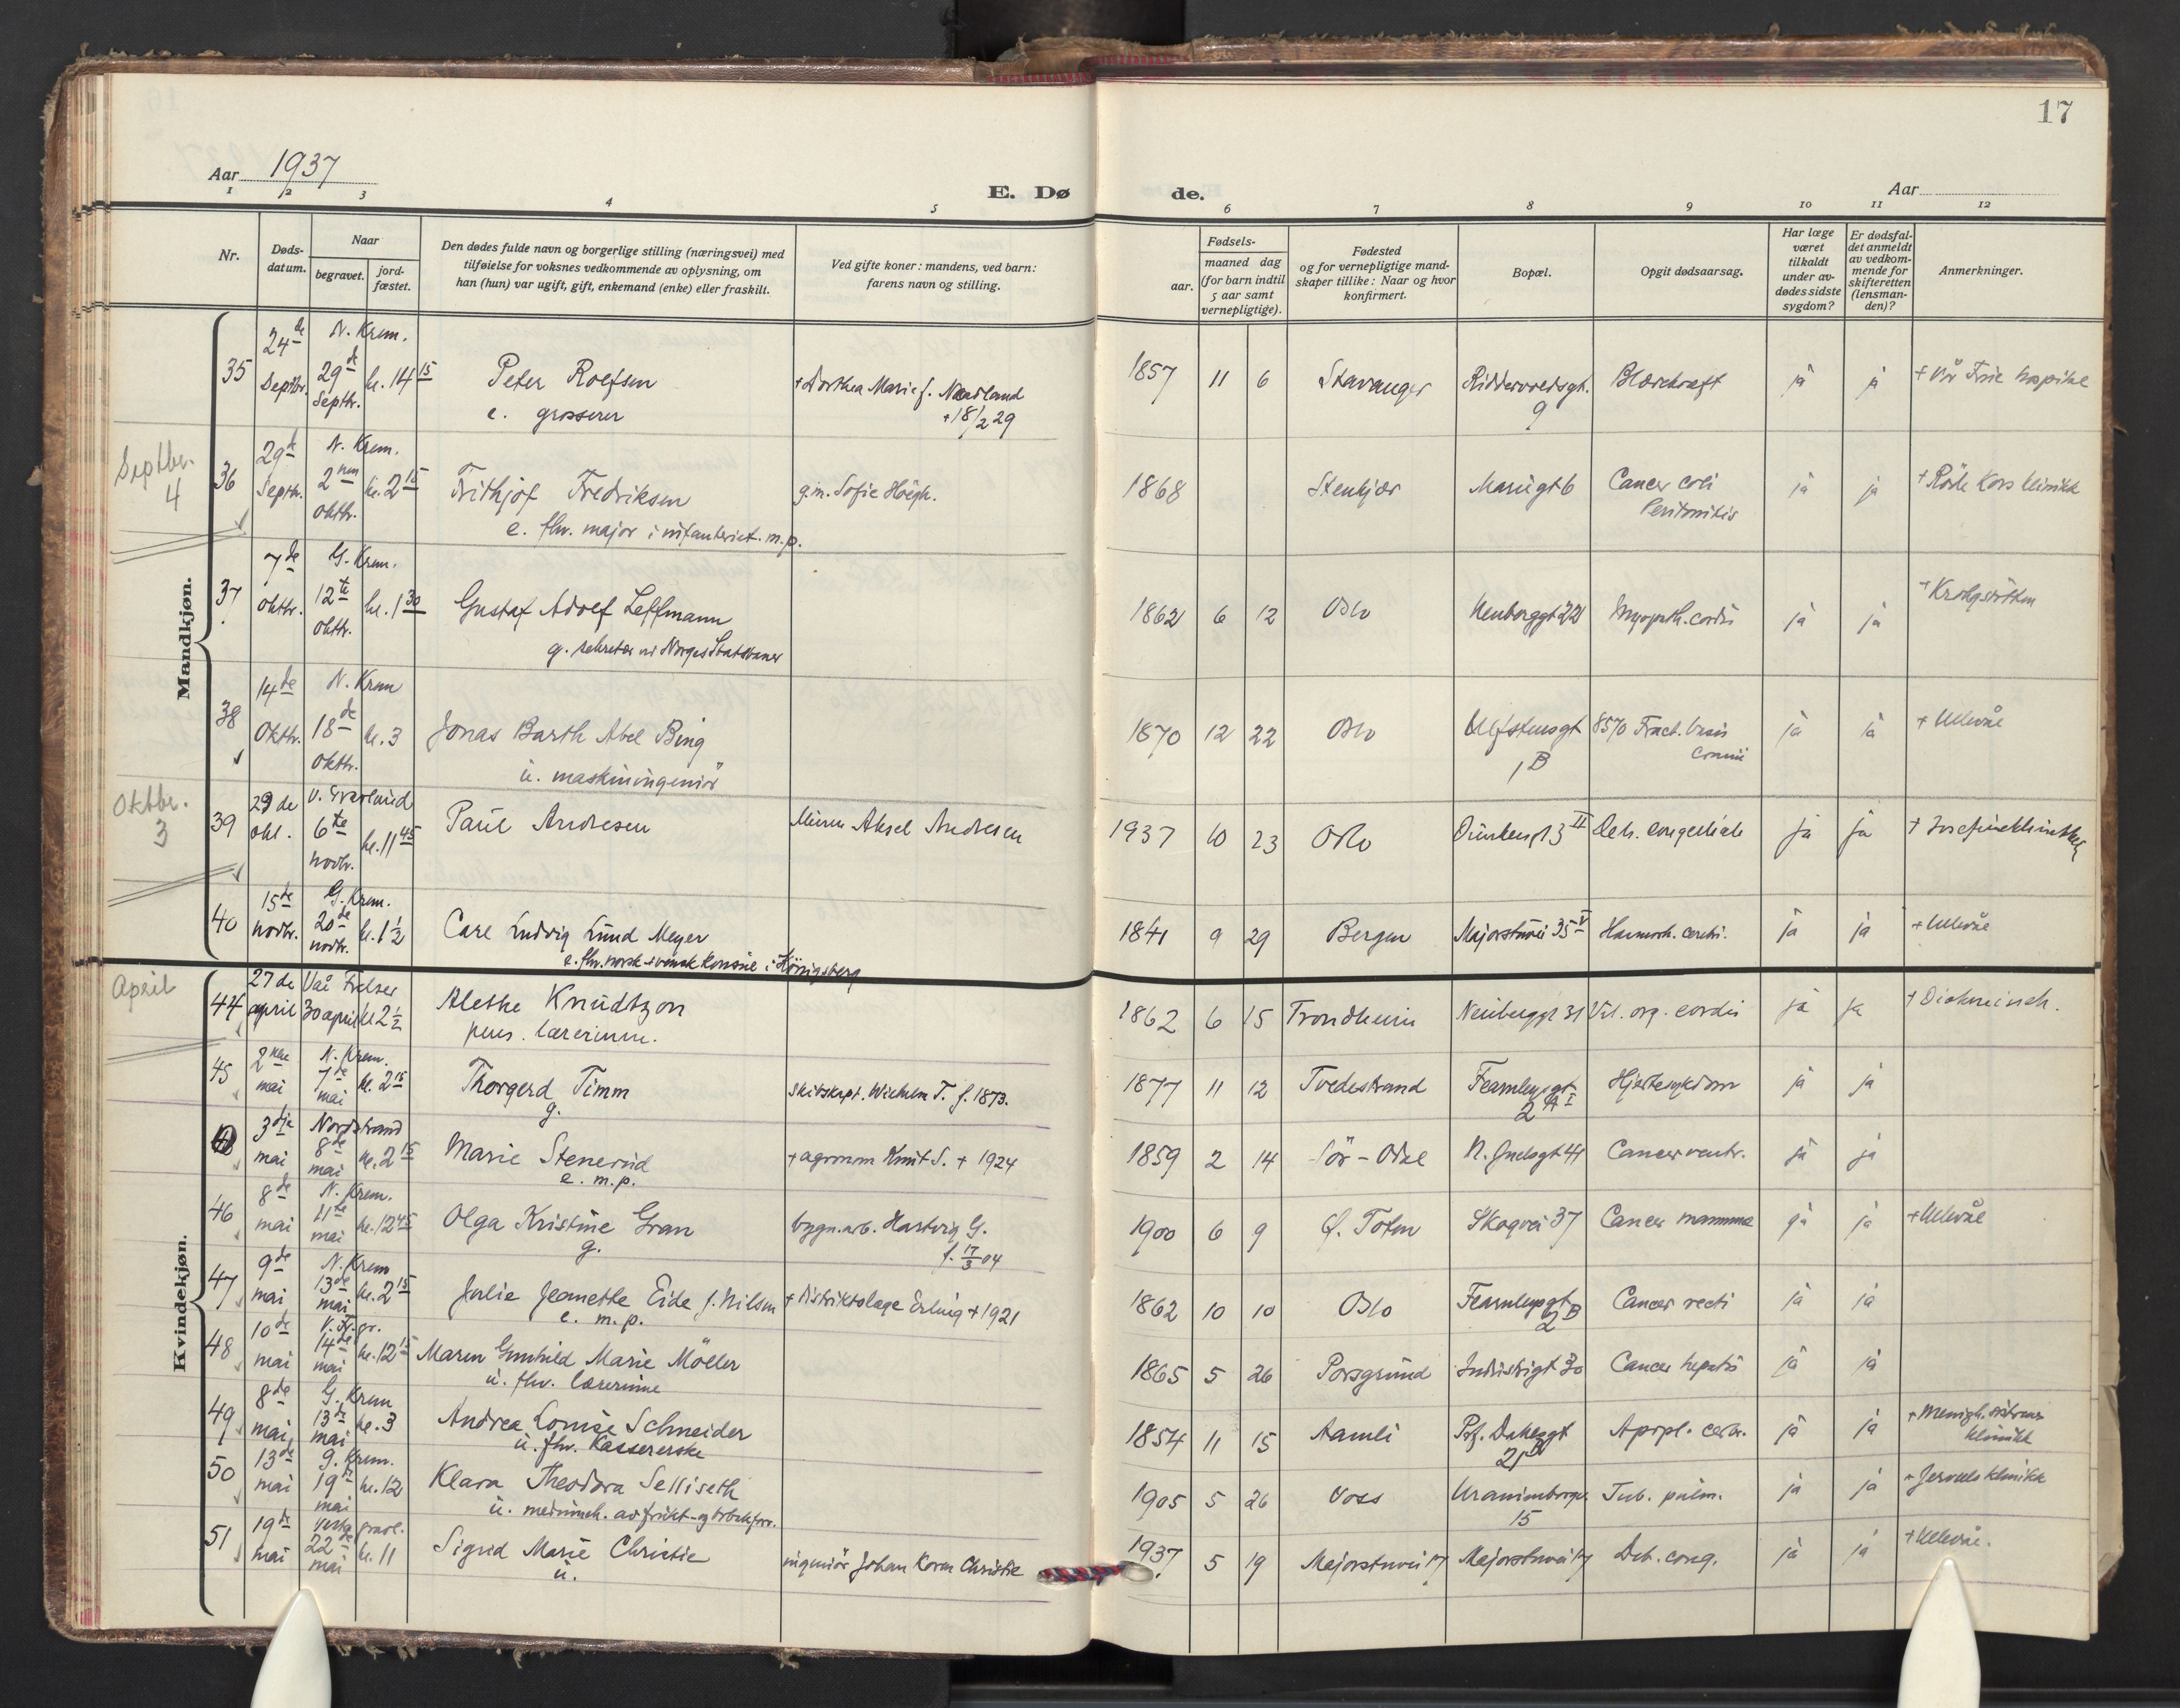 17
Aar 1937
E. Dø de.
Aar
1 2 3 4 5 6 7 8 9 10 11 12
Nr.
Døds-datum.
Naar
begravet.
jord-fæstet.
Den dødes fulde navn og borgerlige stilling (næringsvei) med
tilføielse for voksnes vedkommende av oplysning, om
han (hun) var ugift, gift, enkemand (enke) eller fraskilt.
Ved gifte koner: mandens, ved barn:
farens navn og stilling.
Fødsels-
aar.
maaned dag
(for barn indtil
5 aar samt
vernepligtige).
Fødested
og for vernepligtige mand-
skaper tillike: Naar og hvor
konfirmert.
Bopæl.
Opgit dødsaarsag.
Har læge
været
tilkaldt
under av-
dødes sidste
sygdom?
Er dødsfal-
det anmeldt
av vedkom-
mende for
skifteretten
(lensman-
den)?
Anmerkninger.
Mandkjøn.
35 24de Septbr. N. Krem. 29de Septbr. kl. 14 15 Peter Roefsen + Dorthea Marie f. 1857 11 6 Stavanger Blærekræft ja ja
e. grosserer + 18/2 29 9
Septbr. 4
36 29d Septbr. N. Krem. 2nen Oktbr. kl. 2 15 Frithjof Fredriksen g.m. Sofie Høegh. 1868 Stenkjær Cancer coli ja ja + Røde Kors klinikk
e. fhv. major i infanteriet. m.p. Peritonitis
37 7de Oktbr. G. Krem. 12te Oktbr. kl. 1 30 Gustaf Adolf Leffmann 1862 6 12 Oslo ja ja
g. sekretær ved Norges Statsbaner
38 14de Oktbr. N. Krem 18de Oktbr. kl. 3 Jonas Barth Abel Bing 1870 12 22 Oslo Ulfstensgt ja ja + Ullevål
u. maskiningeniør 1B
Oktbr. 3
39 29de okt. V. Gravlund 6te novbr. kl. 11 45 Paul Andresen Aksel Andresen 1937 10 23 Oslo ja ja
40 15de novbr. G. Krem. 20de novbr. kl. 1 1/2 Carl Ludvig Lund Meyer 1841 9 29 Bergen Majorstuvei 35 V Haemorrh. cerebri. ja ja + Ullevål
e. fhv. norsk-svensk konsul i Königsberg
Kvindekjøn.
April
44 27de april Vår Frelser 30 april kl 2 1/2 Alethe Knudtzon 1862 6 15 Trondheim Neubergt 31 Vit. org. cordis ja ja
pens. lærerinne.
45 2nen mai N. Krem. 7de mai kl. 2 15 Thorgerd Timm Skibskapt. Wilhelm T. f. 1873. 1877 11 12 Tvedestrand Fearnleysgt Hjertesykdom ja ja
g. 2 A I
3dje mai Nordstrand 8de mai kl. 2 15 Marie Stenerud + agronom Knut S. + 1924 1859 2 14 Sør-Odal Cancer ventr. ja ja
e. m.p.
46 8de mai N. Krem. 11te mai kl. 12 45 Olga Kristine Gran bygn.arb. Hartvig G. 1900 6 9 Ø. Toten Skogvei 37 Cancer mammae ja ja + Ullevål
g. f. 17/3 04
47 9de mai N. Krem 13de mai kl. 2 15 Julie Jeanette Eide f. Nilsen + distriktslæge Erling + 1921 1862 10 10 Oslo Fearnleysgt Cancer recti ja ja
e. m.p. 2 B
48 10de mai V. Kr. gr. 14de mai kl. 12 15 Maren Gunhild Marie Möller 1865 5 26 Porsgrund Industrigt 30 Cancer hepatis ja ja
u. fhv. lærerinne
49 8de mai G. Krem 13de mai kl. 3 Andrea Louise Schneider 1854 11 15 Aamli Prf. Dahlsgt Apopl. cerbr. ja ja
u. fhv. kassererske klinikk
50 13de mai G. Krem. 19de mai kl. 12 Klara Theodora Selliseth 1905 5 26 Voss Tub. pulm. ja ja
u. 15
51 19de mai Vestre gravl. 22de mai kl. 11 Sigrid Marie Christie ingeniør Johan Koren Christie 1937 5 19 Majorstuvei 17 Majorstuvei 17 Deb. cong. ja ja + Ullevål.
u.